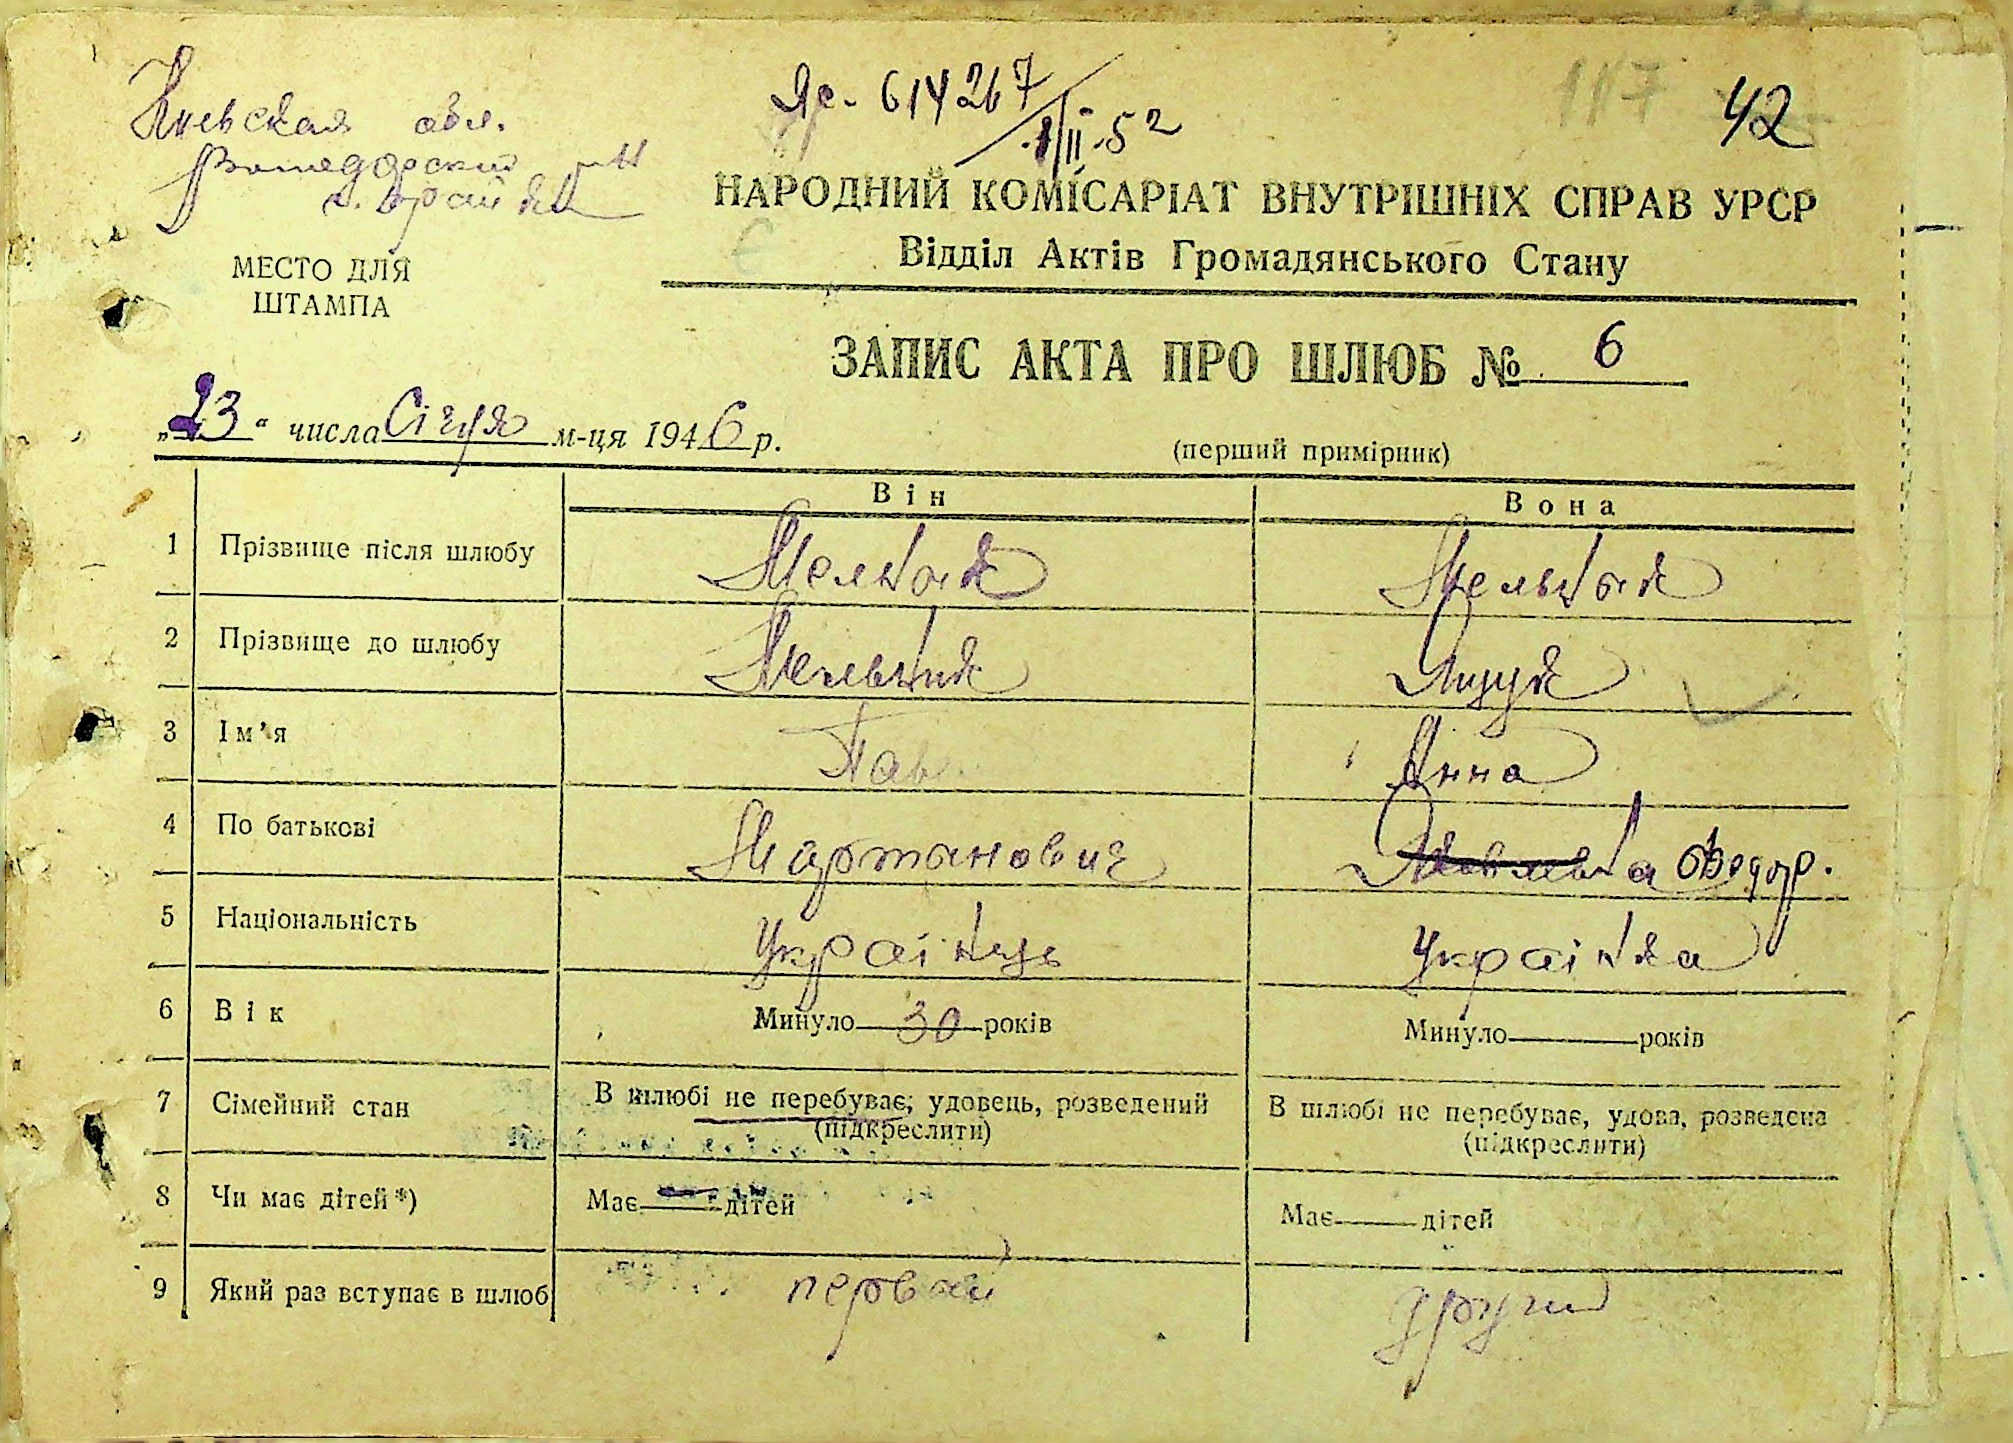 Киевская обл.
р-н
Яс- 614267
1/II.52
117
42
НАРОДНИЙ КОМІСАРІАТ ВНУТРІШНІХ СПРАВ УРСР
Відділ Актів Громадянського Стану
МЕСТО ДЛЯ
ШТАМПА
ЗАПИС АКТА ПРО ШЛЮБ № 6
„23“ числа Січня м-ця 1946 р.
(перший примірник)
Він Вона
1 Прізвище після шлюбу Мельник Мельник
2 Прізвище до шлюбу Мельник
3 Ім'я Пав Анна
4 По батькові Мартинович Федор.
5 Національність Українць Українка
6 Вік Минуло 30 років Минуло років
7 Сімейний стан В шлюбі не перебуває; удовець, розведений В шлюбі не перебуває, удова, розведена
(підкреслити) (підкреслити)
8 Чи має дітей*) Має — дітей Має дітей
9 Який раз вступає в шлюб первий други